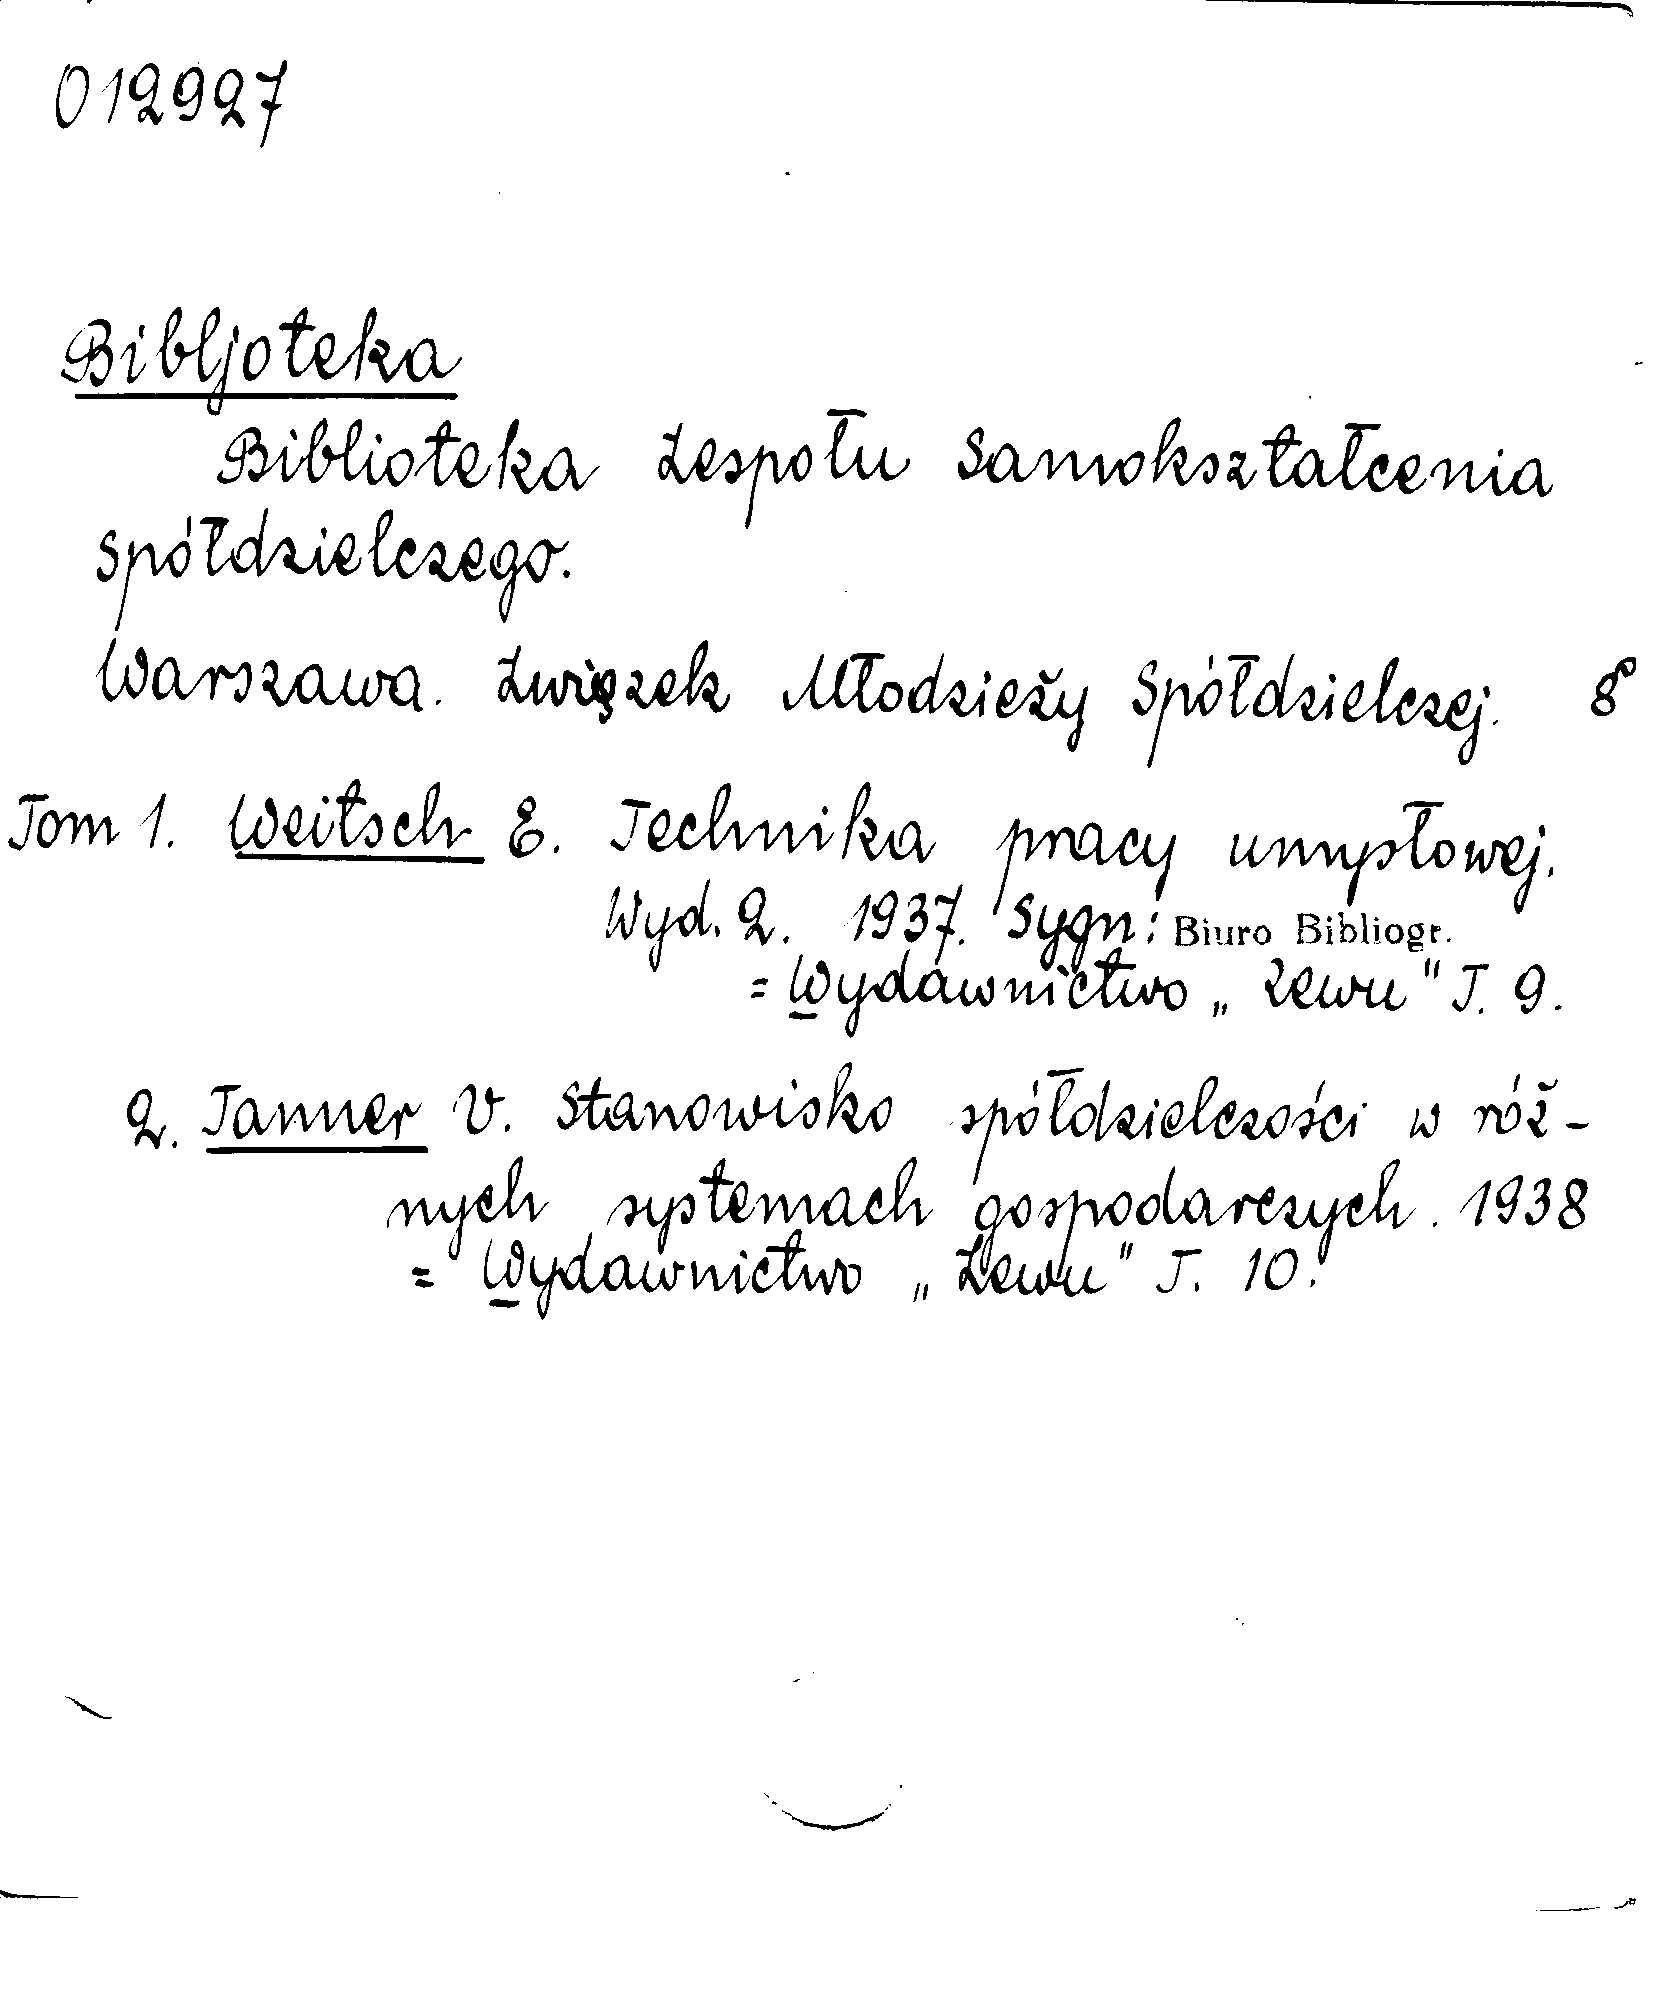 012927
Bibljoteka
Biblioteka Zespołu Samokształcenia
Spółdzielczego.
Warszawa. Związek Młodzieży Spółdzielczej. 8°
Tom 1. Weitsch E. Technika pracy umysłowej.
Wyd. 2. 1937. Sygn: Biuro Bibliogr.
= Wydawnictwo „Zewu" T. 9.
2. Tanner V. Stanowisko spółdzielczości w róż-
nych systemach gospodarczych. 1938
= Wydawnictwo „Zewu" T. 10.